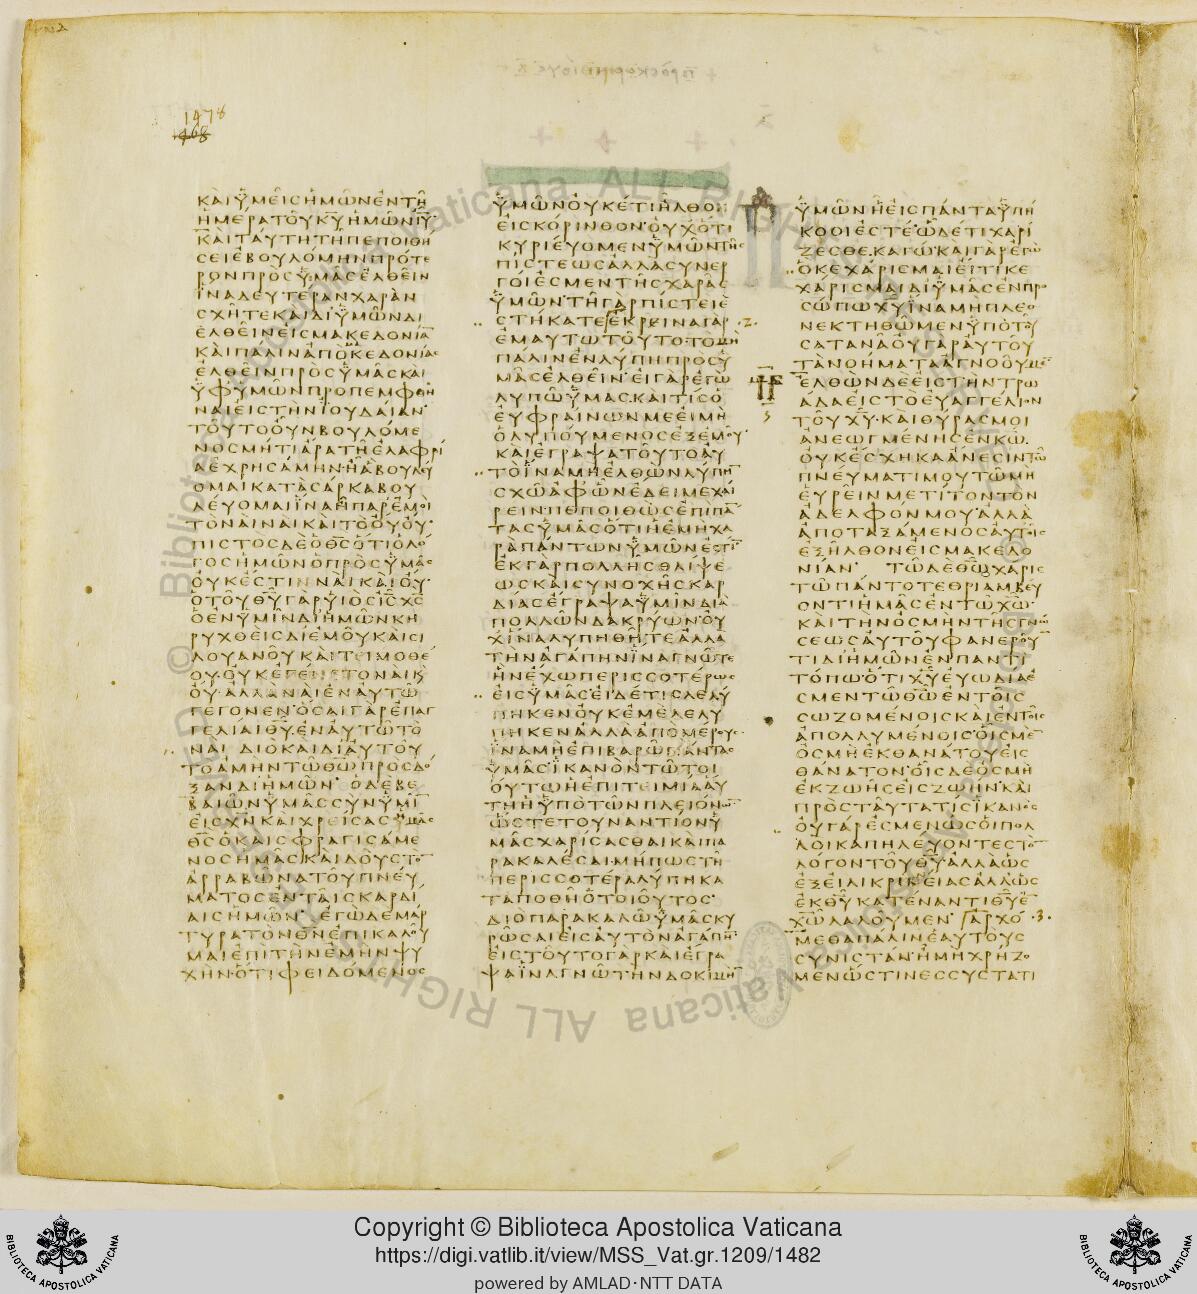 1478
1468
ΚΑΙΥΜΕΙϹΗΜΩΝΕΝΤΗ
ΗΜΕΡΑΤΟΥΚΥΗΜΩΝΙΥ·
ΚΑΙΤΑΥΤΗΤΗΠΕΠΟΙΘΗ
ϹΕΙΕΒΟΥΛΟΜΗΝΠΡΟΤΕ
ΡΟΝΠΡΟϹΥΜΑϹΕΛΘΕΙΝ
ΙΝΑΔΕΥΤΕΡΑΝΧΑΡΑΝ
ϹΧΗΤΕΚΑΙΔΙΥΜΩΝΔΙ
ΕΛΘΕΙΝΕΙϹΜΑΚΕΔΟΝΙΑ̅
ΚΑΙΠΑΛΙΝΑΠΟΜΑΚΕΔΟΝΙΑϹ
ΕΛΘΕΙΝΠΡΟϹΥΜΑϹΚΑΙ
ΥΦΥΜΩΝΠΡΟΠΕΜΦΘΗ
ΝΑΙΕΙϹΤΗΝΙΟΥΔΑΙΑΝ·
ΤΟΥΤΟΟΥΝΒΟΥΛΟΜΕ
ΝΟϹΜΗΤΙΑΡΑΤΗΕΛΑΦΡΙ
ΑΕΧΡΗϹΑΜΗΝ·ΗΑΒΟΥΛΕΥ
ΟΜΑΙΚΑΤΑϹΑΡΚΑΒΟΥ
ΛΕΥΟΜΑΙΙΝΑΗΠΑΡΕΜΟΙ
ΤΟΝΑΙΝΑΙΚΑΙΤΟΟΥΟΥ·
ΠΙϹΤΟϹΔΕΟΘϹΟΤΙΟΛΟ
ΓΟϹΗΜΩΝΟΠΡΟϹΥΜΑϹ
ΟΥΚΕϹΤΙΝΝΑΙΚΑΙΟΥ·
ΟΤΟΥΘΥΓΑΡΥΙΟϹΙϹΧϹ
ΟΕΝΥΜΙΝΔΙΗΜΩΝΚΗ
ΡΥΧΘΕΙϹΔΙΕΜΟΥΚΑΙϹΙ
ΛΟΥΑΝΟΥΚΑΙΤΕΙΜΟΘΕ
ΟΥ·ΟΥΚΕΓΕΝΕΤΟΝΑΙΚ
ΟΥ·ΑΛΛΑΝΑΙΕΝΑΥΤΩ
ΓΕΓΟΝΕΝ·ΟϹΑΙΓΑΡΕΠΑΓ
ΓΕΛΙΑΙΘΥ·ΕΝΑΥΤΩΤΟ
ΝΑΙ ΔΙΟΚΑΙΔΙΑΥΤΟΥ
ΤΟΑΜΗΝΤΩΘΩΠΡΟϹΔΟ
ΞΑΝΔΙΗΜΩΝ· ΟΔΕΒΕ
ΒΑΙΩΝΥΜΑϹϹΥΝΥΜΙ̅
ΕΙϹΧΝΚΑΙΧΡΕΙϹΑϹΗΜΑϹ
ΘϹΟΚΑΙϹΦΡΑΓΙϹΑΜΕ
ΝΟϹΗΜΑϹΚΑΙΔΟΥϹΤΟ̅
ΑΡΡΑΒΩΝΑΤΟΥΠΝΕΥ
ΜΑΤΟϹΕΝΤΑΙϹΚΑΡΔΙ
ΑΙϹΗΜΩΝ· ΕΓΩΔΕΜΑΡ
ΤΥΡΑΤΟΝΘΝΕΠΙΚΑΛΟΥ
ΜΑΙΕΠΙΤΗΝΕΜΗΝΨΥ
ΧΗΝ·ΟΤΙΦΕΙΔΟΜΕΝΟϹ
ΥΜΩΝΟΥΚΕΤΙΗΛΘΟΝ
ΕΙϹΚΟΡΙΝΘΟΝ·ΟΥΧΟΤΙ
ΚΥΡΙΕΥΟΜΕΝΥΜΩΝΤΗϹ
ΠΙϹΤΕΩϹΑΛΛΑϹΥΝΕΡ
ΓΟΙΕϹΜΕΝΤΗϹΧΑΡΑϹ
ΥΜΩΝ·ΤΗΓΑΡΠΙϹΤΕΙΕ
ϹΤΗΚΑΤΕ ΕΚΡΕΙΝΑΓΑΡ ·2·
ΕΜΑΥΤΩΤΟΥΤΟΤΟΜΗ
ΠΑΛΙΝΕΝΛΥΠΗΠΡΟϹΥ
ΜΑϹΕΛΘΕΙΝ·ΕΙΓΑΡΕΓΩ
ΛΥΠΩΥΜΑϹ·ΚΑΙΤΙϹΟ
ΕΥΦΡΑΙΝΩΝΜΕΕΙΜΗ
ΟΛΥΠΟΥΜΕΝΟϹΕΞΕΜΟΥ·
ΚΑΙΕΓΡΑΨΑΤΟΥΤΟΑΥ
ΤΟΙΝΑΜΗΕΛΘΩΝΛΥΠΗ̅
ϹΧΩΑΦΩΝΕΔΕΙΜΕΧΑΙ
ΡΕΙΝ·ΠΕΠΟΙΘΩϹΕΠΙΠΑ̅
ΤΑϹΥΜΑϹΟΤΙΗΕΜΗΧΑ
ΡΑΠΑΝΤΩΝΥΜΩΝΕϹΤΙ̅
ΕΚΓΑΡΠΟΛΛΗϹΘΛΙΨΕ
ΩϹΚΑΙϹΥΝΟΧΗϹΚΑΡ
ΔΙΑϹΕΓΡΑΨΑΥΜΙΝΔΙΑ
ΠΟΛΛΩΝΔΑΚΡΥΩΝ·ΟΥ
ΧΙΝΑΛΥΠΗΘΗΤΕΑΛΛΑ
ΤΗΝΑΓΑΠΗΝΙΝΑΓΝΩΤΕ
ΗΝΕΧΩΠΕΡΙϹϹΟΤΕΡΩϹ
ΕΙϹΥΜΑϹ·ΕΙΔΕΤΙϹΛΕΛΥ
ΠΗΚΕΝΟΥΚΕΜΕΛΕΛΥ
ΠΗΚΕΝΑΛΛΑΑΠΟΜΕΡΟΥϹ·
ΙΝΑΜΗΕΠΙΒΑΡΩΠΑΝΤΑϹ
ΥΜΑϹ·ΙΚΑΝΟΝΤΩΤΟΙ
ΟΥΤΩΗΕΠΙΤΕΙΜΙΑΑΥ
ΤΗΗΥΠΟΤΩΝΠΛΕΙΟΝΩ̅
ΩϹΤΕΤΟΥΝΑΝΤΙΟΝΥ
ΜΑϹΧΑΡΙϹΑϹΘΑΙΚΑΙΠΑ
ΡΑΚΑΛΕϹΑΙ·ΜΗΠΩϹΤΗ
ΠΕΡΙϹϹΟΤΕΡΑΛΥΠΗΚΑ
ΤΑΠΟΘΗΟΤΟΙΟΥΤΟϹ·
ΔΙΟΠΑΡΑΚΑΛΩΥΜΑϹΚΥ
ΡΩϹΑΙΕΙϹΑΥΤΟΝΑΓΑΠΗ̅·
ΕΙϹΤΟΥΤΟΓΑΡΚΑΙΕΓΡΑ
ΨΑΙΝΑΓΝΩΤΗΝΔΟΚΙΜΗ̅
ΥΜΩΝΗΕΙϹΠΑΝΤΑΥΠΗ
ΚΟΟΙΕϹΤΕ·ΩΔΕΤΙΧΑΡΙ
ΖΕϹΘΕ·ΚΑΓΩ·ΚΑΙΓΑΡΕΓΩ
ΟΚΕΧΑΡΙϹΜΑΙΕΙΤΙΚΕ
ΧΑΡΙϹΜΑΙΔΙΥΜΑϹΕΝΠΡΟ
ϹΩΠΩΧΥΙΝΑΜΗΠΛΕΟ
ΝΕΚΤΗΘΩΜΕΝΥΠΟΤΟΥ
ϹΑΤΑΝΑΟΥΓΑΡΑΥΤΟΥ
ΤΑΝΟΗΜΑΤΑΑΓΝΟΟΥΜΕ̅
ΕΛΘΩΝΔΕΕΙϹΤΗΝΤΡΩ
ΑΔΑΕΙϹΤΟΕΥΑΓΓΕΛΙΟΝ
ΤΟΥΧΥ·ΚΑΙΘΥΡΑϹΜΟΙ
ΑΝΕΩΓΜΕΝΗϹΕΝΚΩ·
ΟΥΚΕϹΧΗΚΑΑΝΕϹΙΝΤΩ
ΠΝΕΥΜΑΤΙΜΟΥΤΩΜΗ
ΕΥΡΕΙΝΜΕΤΙΤΟΝΤΟΝ
ΑΔΕΛΦΟΝΜΟΥ·ΑΛΛΑ
ΑΠΟΤΑΞΑΜΕΝΟϹΑΥΤΟΙϹ
ΕΞΗΛΘΟΝΕΙϹΜΑΚΕΔΟ
ΝΙΑΝ· ΤΩΔΕΘΩΧΑΡΙϹ
ΤΩΠΑΝΤΟΤΕΘΡΙΑΜΒΕΥ
ΟΝΤΙΗΜΑϹΕΝΤΩΧΩ·
ΚΑΙΤΗΝΟϹΜΗΝΤΗϹΓΝΩ
ϹΕΩϹΑΥΤΟΥΦΑΝΕΡΟΥ̅
ΤΙΔΙΗΜΩΝΕΝΠΑΝΤΙ
ΤΟΠΩ·ΟΤΙΧΥΕΥΩΔΙΑΕ
ϹΜΕΝΤΩΘΩΕΝΤΟΙϹ
ϹΩΖΟΜΕΝΟΙϹΚΑΙΕΝΤΟΙϹ
ΑΠΟΛΛΥΜΕΝΟΙϹ·ΟΙϹΜΕ̅
ΟϹΜΗΕΚΘΑΝΑΤΟΥΕΙϹ
ΘΑΝΑΤΟΝ·ΟΙϹΔΕΟϹΜΗ
ΕΚΖΩΗϹΕΙϹΖΩΗΝ·ΚΑΙ
ΠΡΟϹΤΑΥΤΑΤΙϹΙΚΑΝΟϹ
ΟΥΓΑΡΕϹΜΕΝΩϹΟΙΠΟΛ
ΛΟΙΚΑΠΗΛΕΥΟΝΤΕϹΤΟ̅
ΛΟΓΟΝΤΟΥΘΥΑΛΛΑΩϹ
ΕΞΕΙΛΙΚΡΙΝΕΙΑϹΑΛΛΩϹ
ΕΚΘΥΚΑΤΕΝΑΝΤΙΘΥΕ̅
ΧΩΛΑΛΟΥΜΕΝ· ΑΡΧΟ ·3·
ΜΕΘΑΠΑΛΙΝΕΑΥΤΟΥϹ
ϹΥΝΙϹΤΑΝ·ΗΜΗΧΡΗΖΟ
ΜΕΝΩϹΤΙΝΕϹϹΥϹΤΑΤΙ
Copyright © Biblioteca Apostolica Vaticana
https://digi.vatlib.it/view/MSS_Vat.gr.1209/1482
powered by AMLAD·NTT DATA